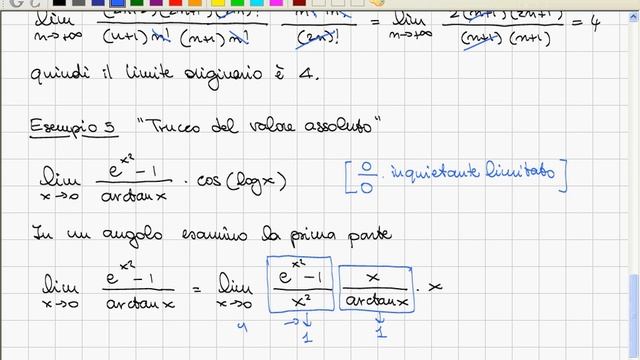 lim n→+∞ (2n+2)(2n+1)(2n)! / (n+1) n! (n+1) n! · n! n! / (2n)! = lim n→+∞ 2(n+1)(2n+1) / (n+1)(n+1) = 4
quindi il limite originario è 4.
Esempio 5 "Trucco del valore assoluto"
lim x→0 e^x² − 1 / arctan x · cos(log x) [ 0/0 · inquietante limitato ]
In un angolo esamino la prima parte
lim x→0 e^x² − 1 / arctan x = lim x→0 e^x² − 1 / x² · x / arctan x · x
→ ↓ ↓
1 1